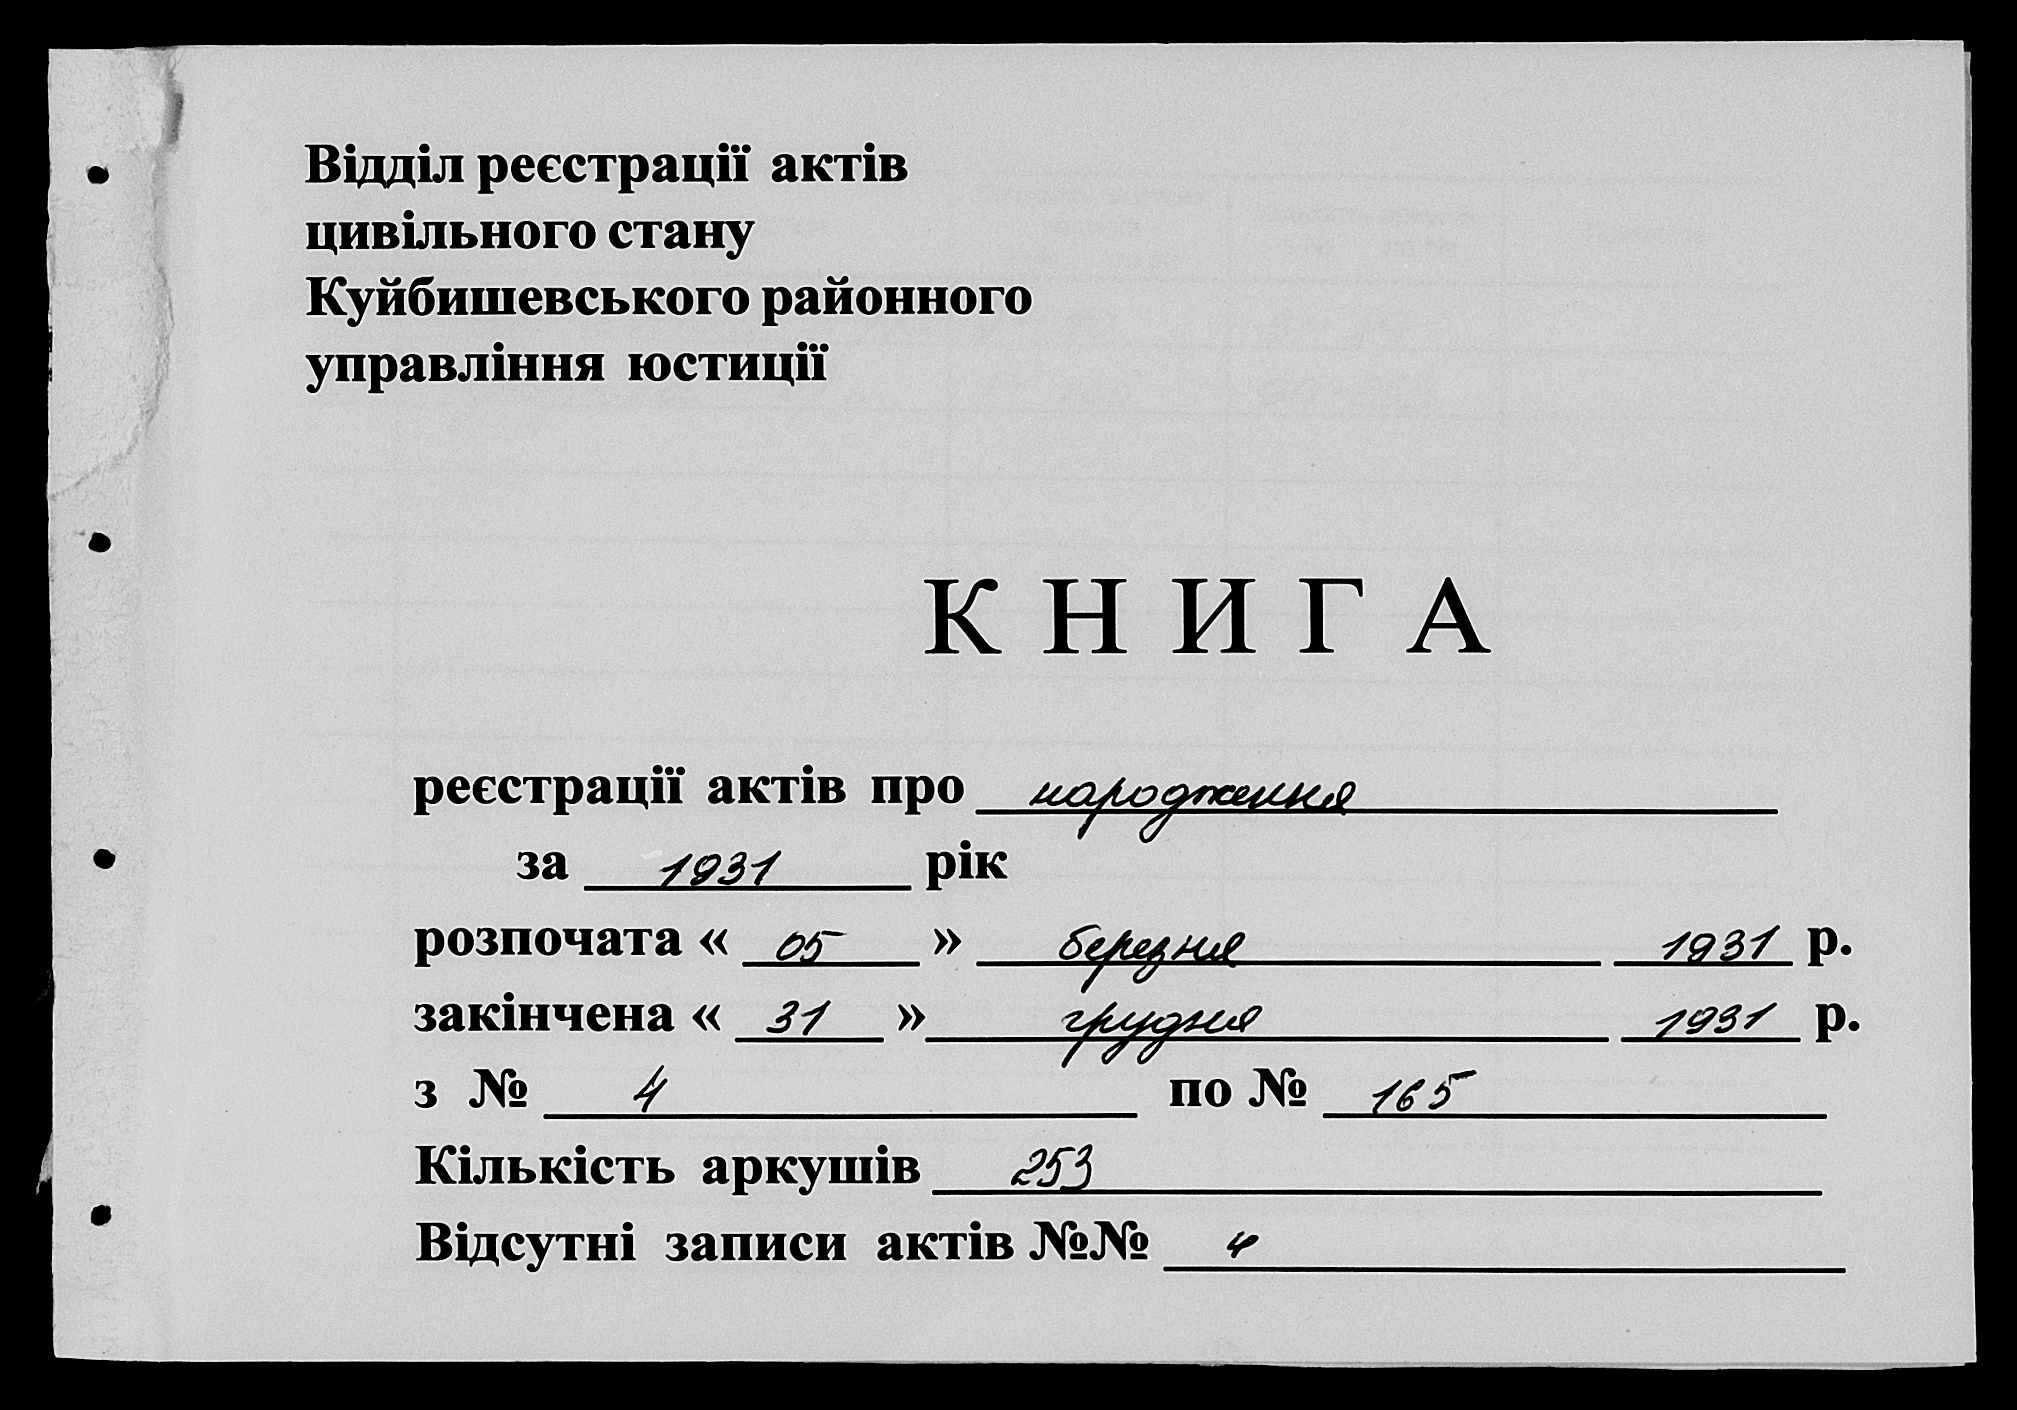 Відділ реєстрації актів
цивільного стану
Куйбишевського районного
управління юстиції
КНИГА
реєстрації актів про народження
за 1931 рік
розпочата « 05 » березня 1931 р.
закінчена « 31 » грудня 1931 р.
з № 4 по № 165
Кількість аркушів 253
Відсутні записи актів №№